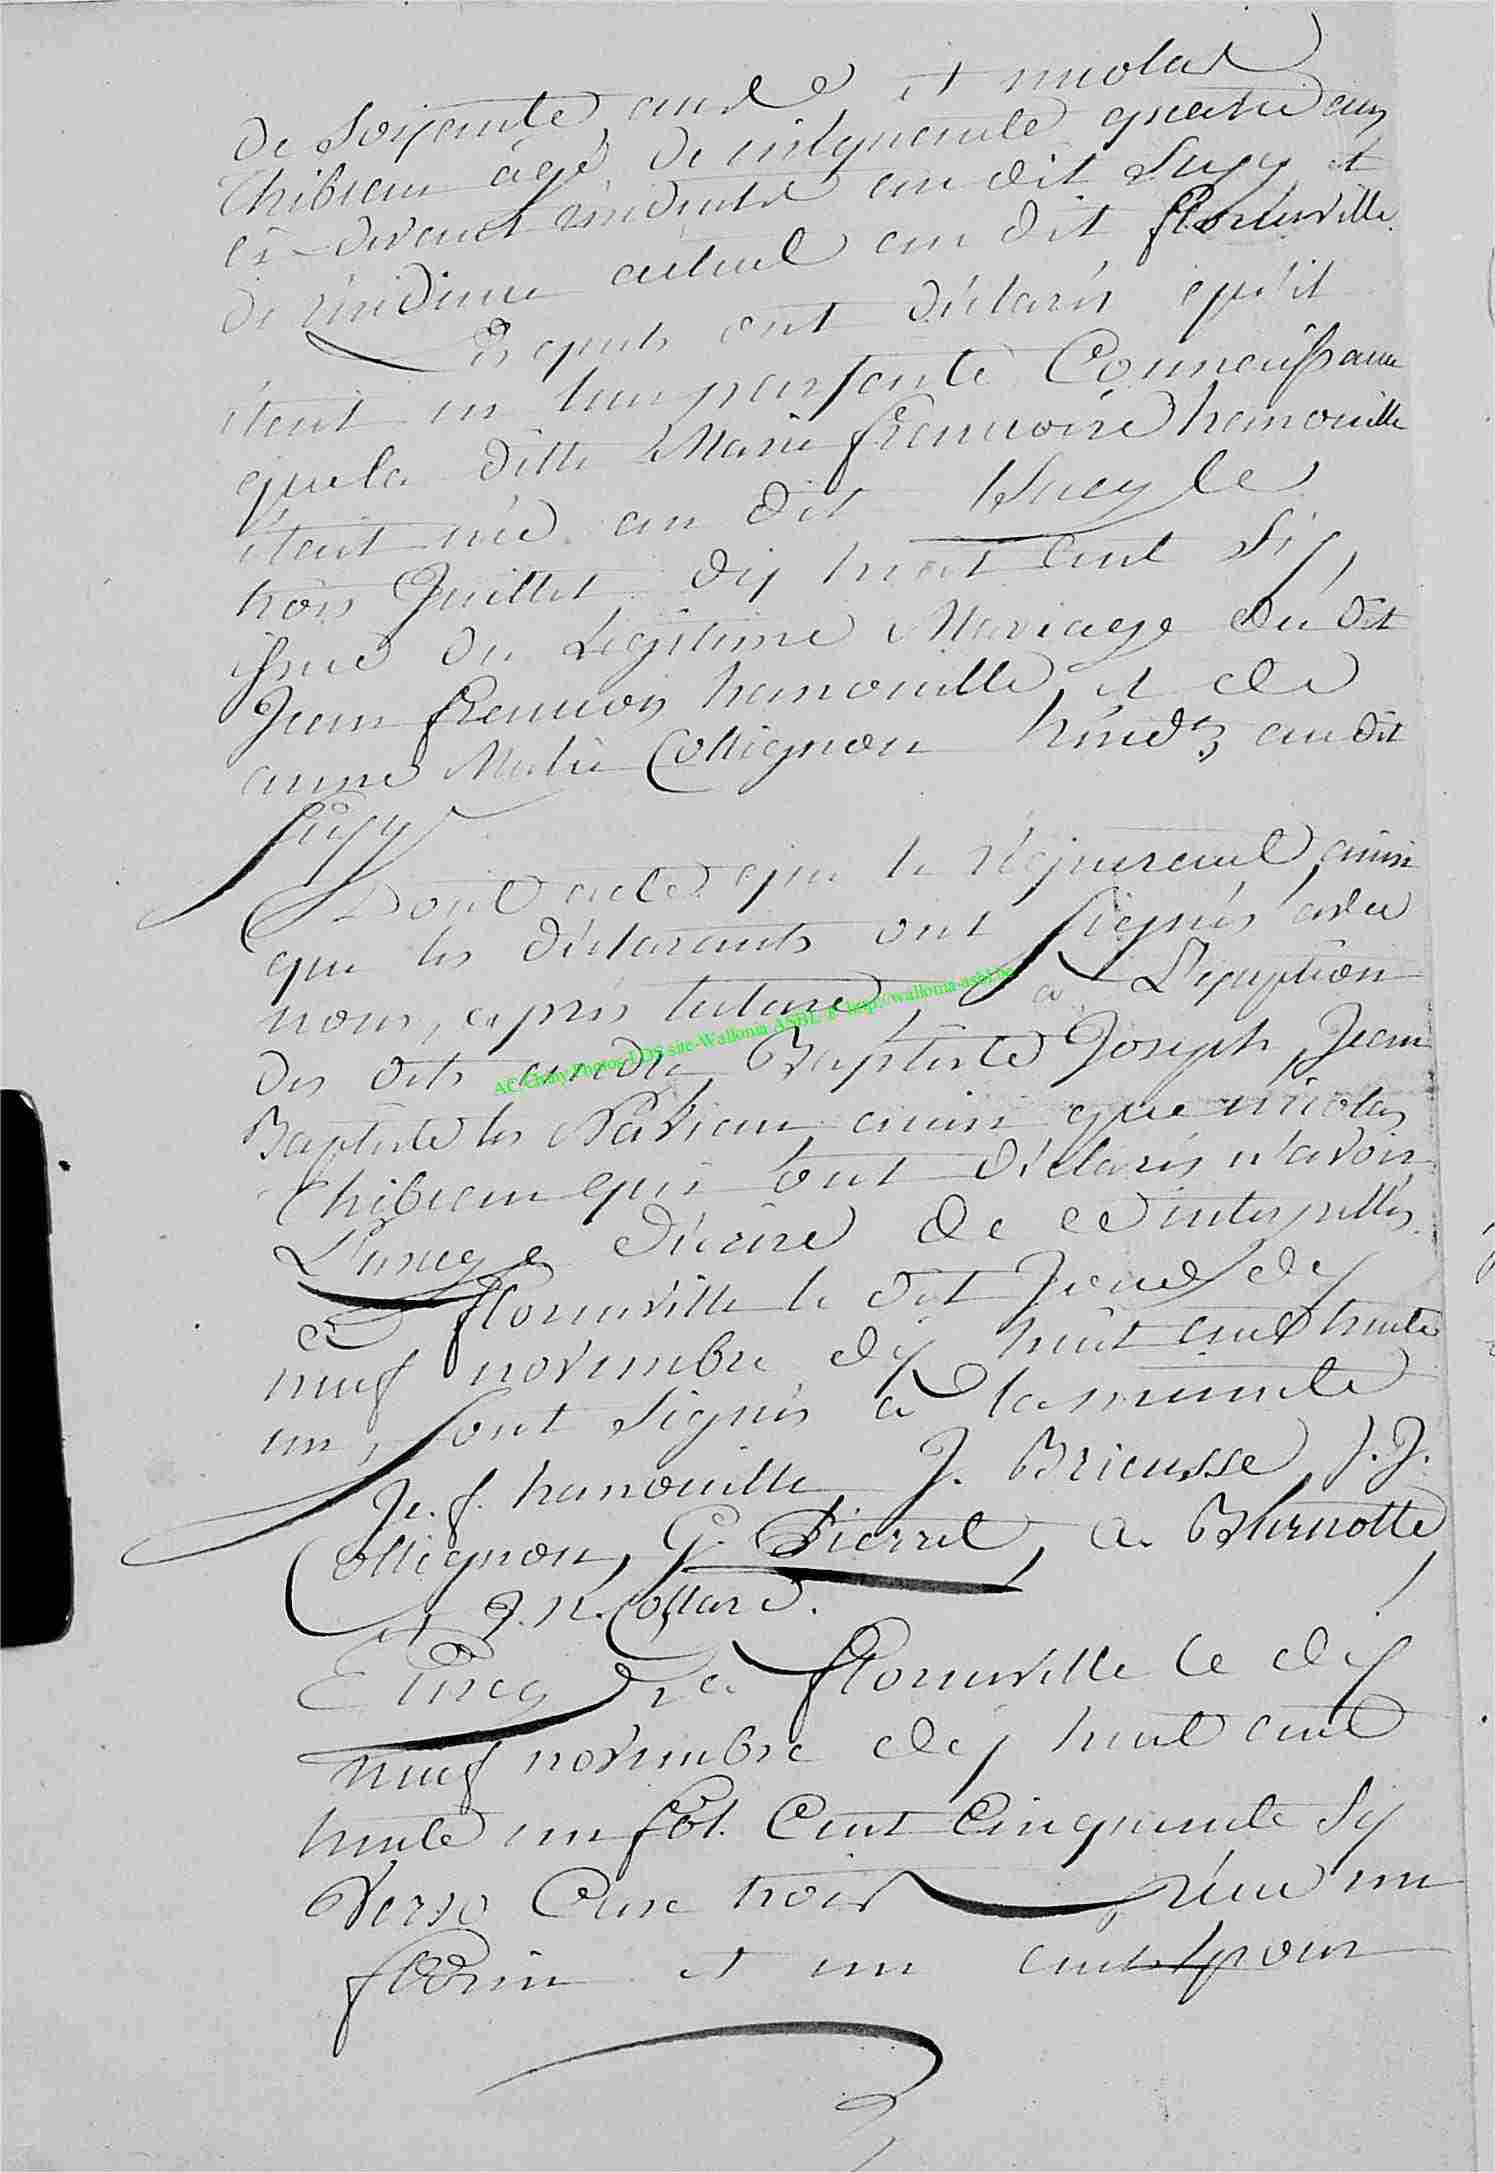 de Soixante ans et nicolas
Thibeau âgé de cinquante quatre ans
ci-devant résidents au dit Sugy et
de résidence actuel au dit florenville.
Lesquels ont déclarés qu'il
étent en leur parfaite Connaissance
que la ditte Marie françoise hanouille
étent née au dit Sucy le
trois Juillet dix huit cent Six,
issue du Légitime Mariage du dit
Jean françois hanouille et de
anne Marie Collignon Résidts au dit
Sugy
Dont acte que le Réquerent ainsi
que les déclarants ont Signés avec
nous, après lecture, à L'exeption
des dits andré, Baptiste Joseph, Jean
Baptiste les Naviaux ainsi que nicolas
Thibeau qui ont déclarés n'avoir
L'usage d'écrire de ce interpellés.
à florenville le dit Jour dix
neuf novembre dix huit cent trente
un, Sont Signés à la minute
Je. f. hanouille, J. Bricusse, J. J.
Collignon, G. Pierret, a. Blernotte,
J. N. Collard.
Enreg. à florenville le dix
neuf novembre dix huit cent
trente un fol. Cent Cinquante Six
Verso Case trois réçu un
florin et un cents pour
AC Chiny Photos LDG site-Wallonia ASBL © http://wallonia-asbl.be